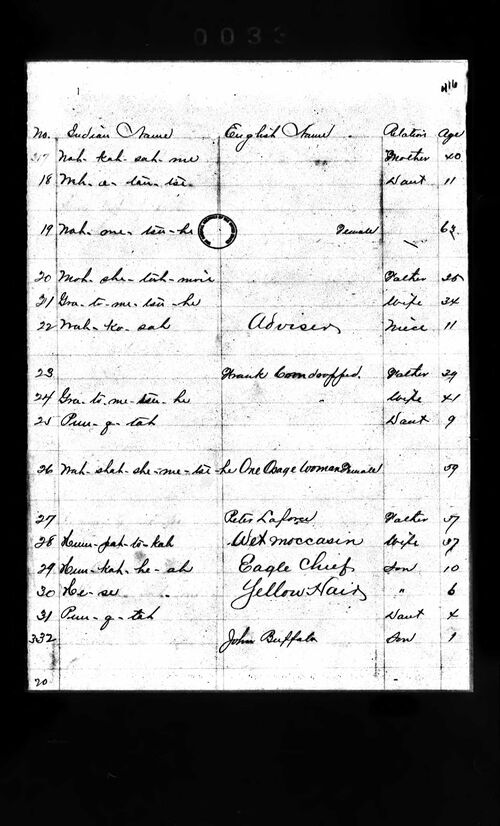 0033
416
No. Indian Name English Name. Relation Age
317 Wah-kah-sah-me Mother 40
18 Daut 11
19 Wah-me-tsu-he Female 62
20 Father 25
21 Gra-to-me-tsu-he Wife 34
22 Wah-ko-sah Adviser Niece 11
23 Frank Corndropped. Father 29
24 Gra-to-me-tsu-he " Wife 41
25 Pun-q-tah Daut 9
26 Wah-shah-she-me-tsi-he One Osage Woman Female 59
27 Peter Laforce Father 57
28 Hum-pah-to-kah Wet Moccasin Wife 37
29 Hun-kah-he-ah Eagle Chief Son 10
30 He-se Yellow Hair " 6
31 Pun-q-tah Daut 4
332 John Buffalo Son 1
20